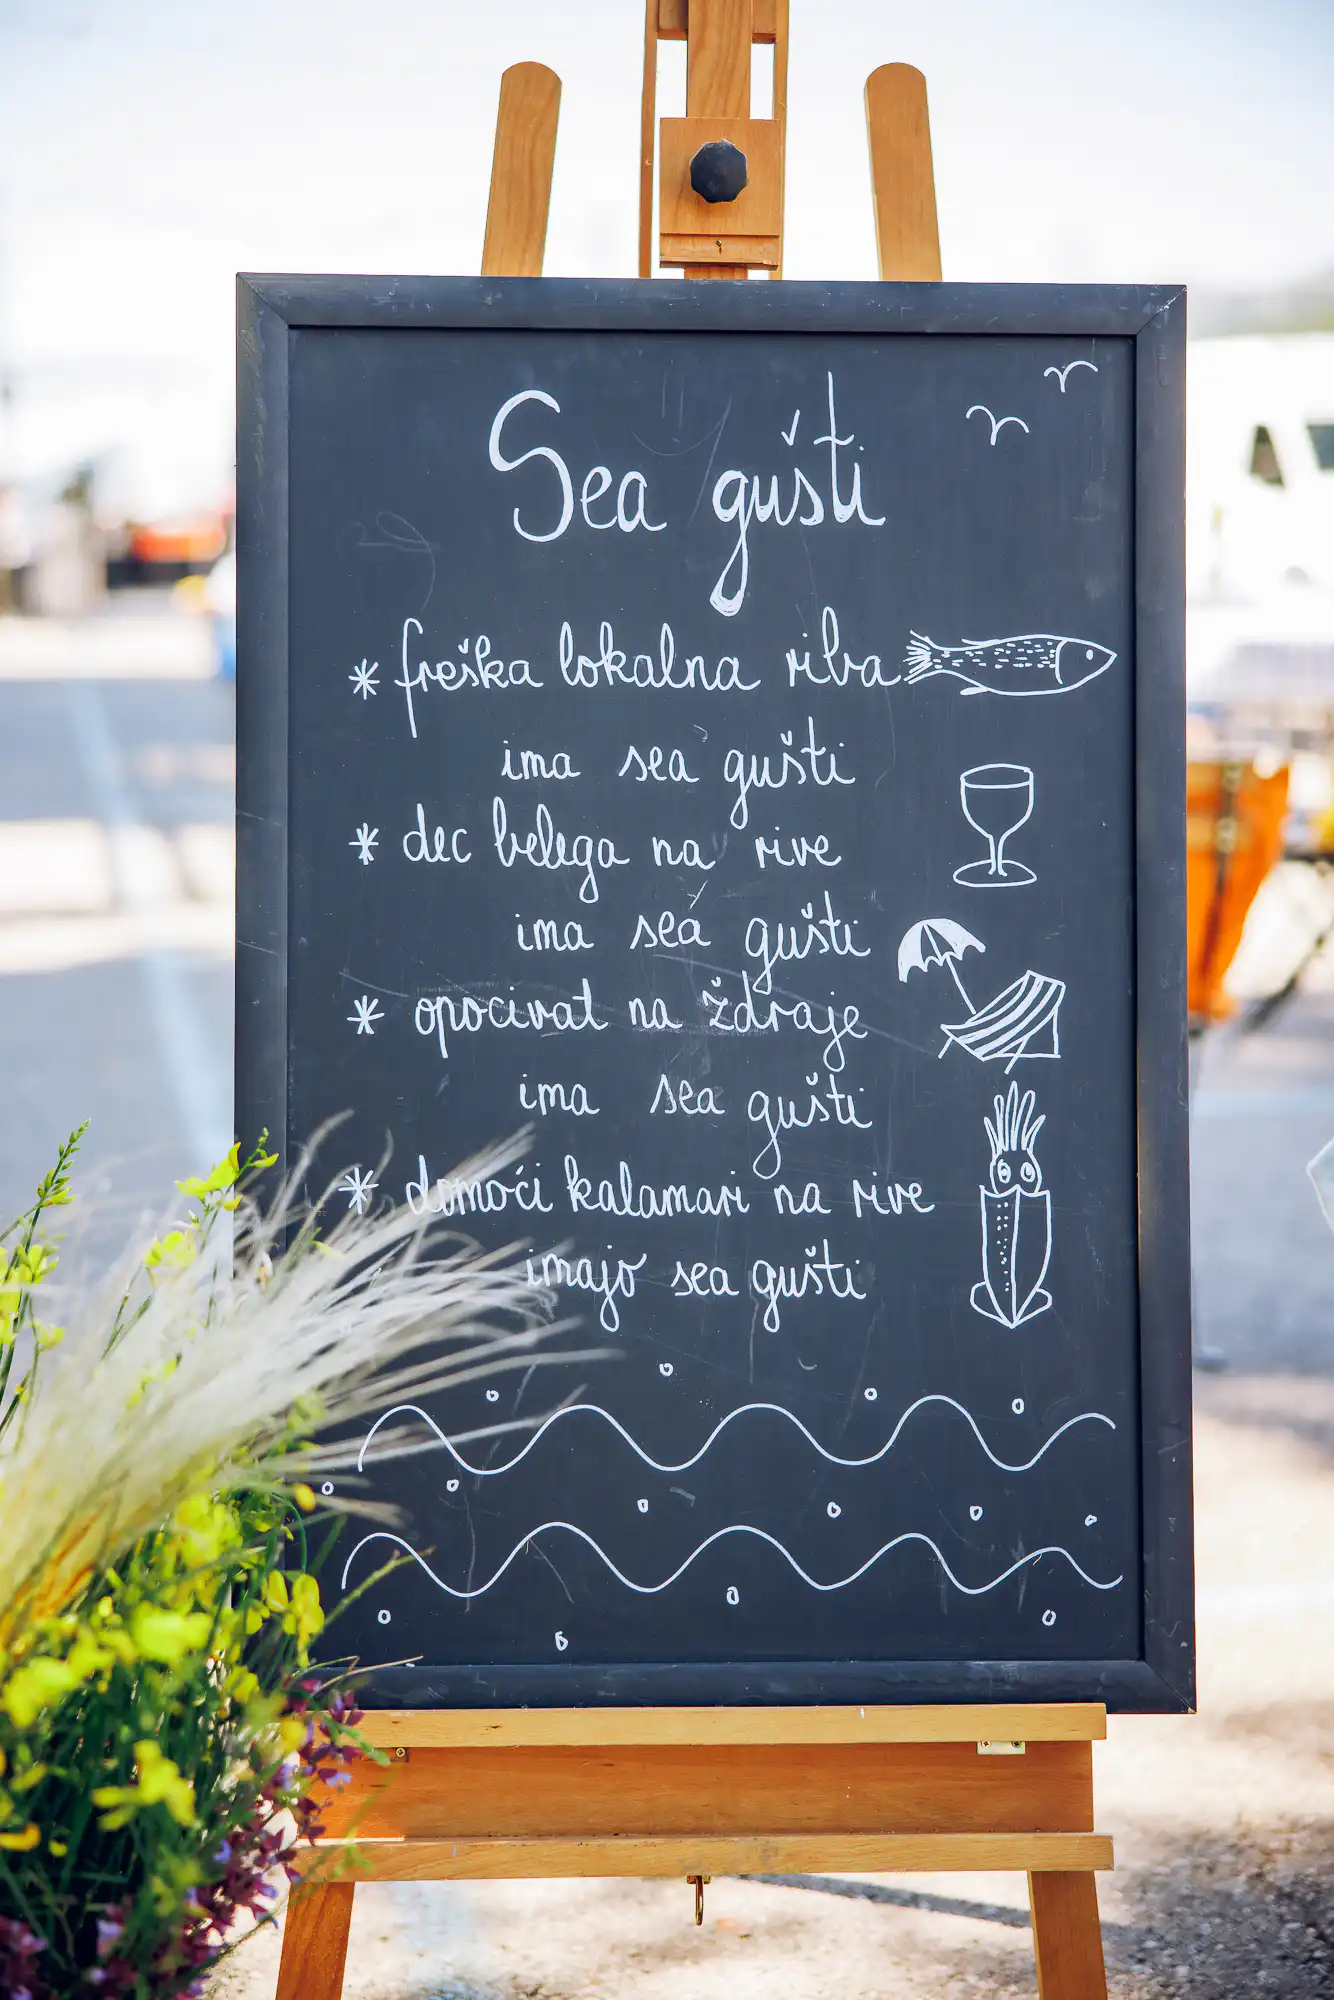 Sea gušti
* freška lokalna riba
ima sea gušti
* dec belega na rive
ima sea gušti
* opocivat na ždraje
ima sea gušti
* domoći kalamari na rive
imajo sea gušti